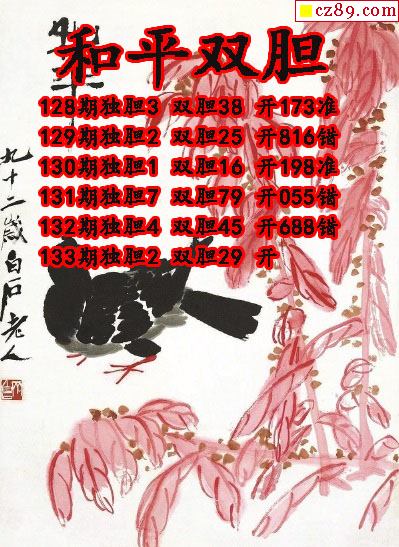 cz89.com
和平双胆
128期独胆3 双胆38 开173准
129期独胆2 双胆25 开816错
130期独胆1 双胆16 开198准
131期独胆7 双胆79 开055错
132期独胆4 双胆45 开688错
133期独胆2 双胆29 开
九十二歲白石老人